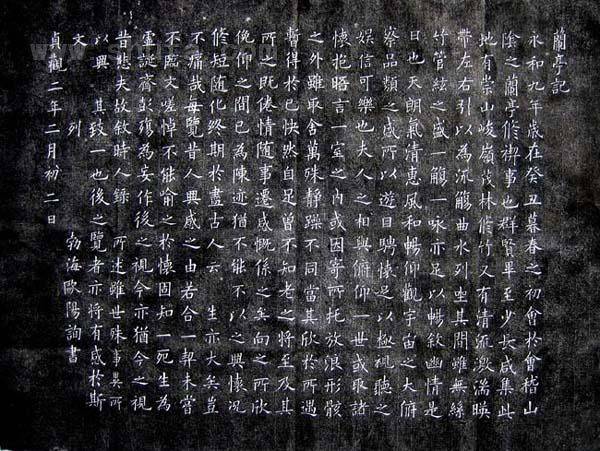 蘭亭記
永和九年歲在癸丑暮春之初會於會稽山
陰之蘭亭修禊事也群賢畢至少長咸集此
地有崇山峻嶺茂林修竹又有清流激湍暎
帶左右引以為流觴曲水列坐其間雖無絲
竹管絃之盛一觴一咏亦足以暢敘幽情是
日也天朗氣清惠風和暢仰觀宇宙之大俯
察品類之盛所以遊目騁懷足以極視聽之
娛信可樂也夫人之相與俯仰一世或取諸
懷抱晤言一室之內或因寄所托放浪形骸
之外雖取舍萬殊靜躁不同當其欣於所遇
暫得於己快然自足曾不知老之將至及其
所之既倦情隨事遷感慨係之矣向之所欣
俛仰之間已為陳迹猶不能不以之興懷況
修短隨化終期於盡古人云 生亦大矣豈
不痛哉每覽昔人興感之由若合一契未嘗
不臨文嗟悼不能喻之於懷固知一死生為
虛誕齊彭殤為妄作後之視今亦猶今之視
昔悲夫故敘時人錄 所述雖世殊事異所
以興 其致一也後之覽者亦將有感於斯
文 列 勃海歐陽詢書
貞觀二年二月初二日